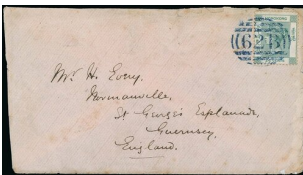 62B
Mr. H. Every.
Normanville,
St George's Esplanade,
Guernsey.
England.